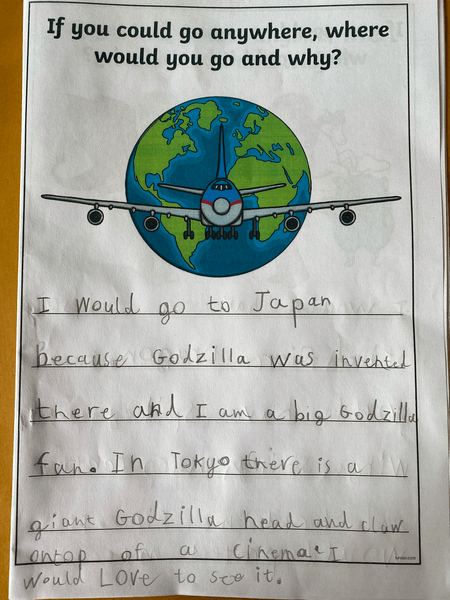 If you could go anywhere, where
would you go and why?
I would go to Japan
because Godzilla was invented
there and I am a big Godzilla
fan. In Tokyo there is a
giant Godzilla head and claw
ontop of a cinema. I
would LOVE to see it.